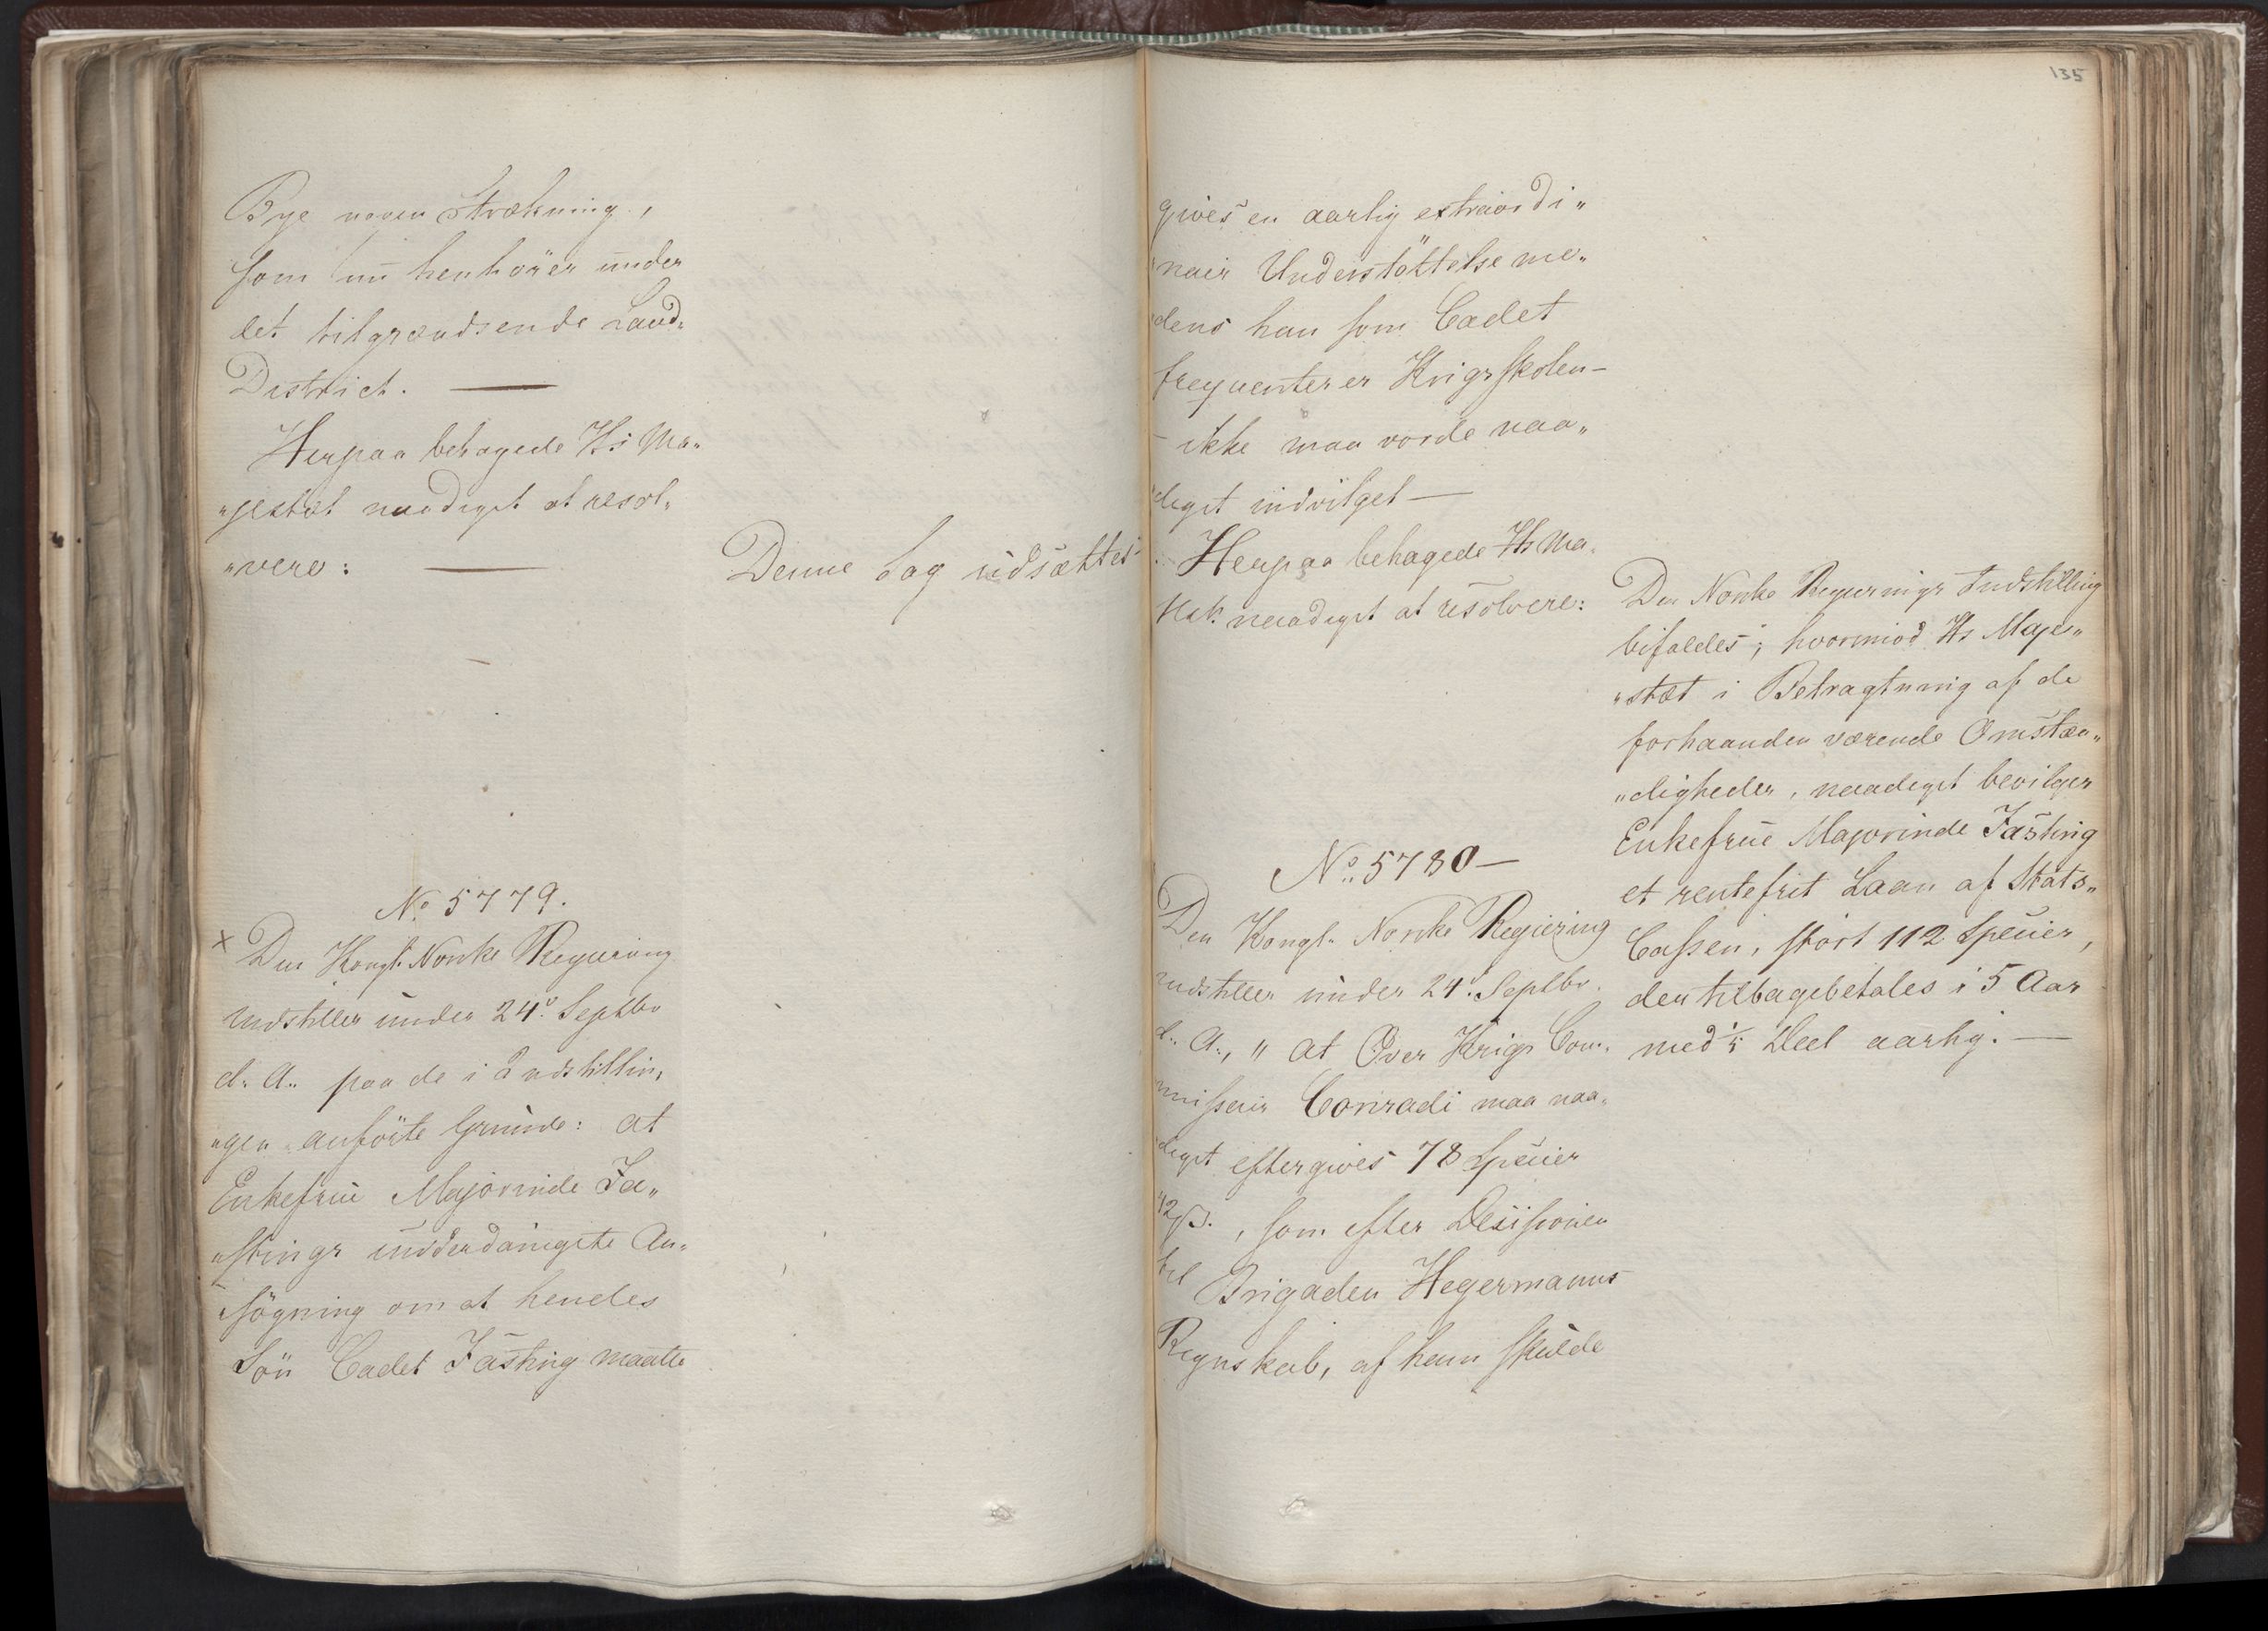 Bye nogen Strækning,
som nu henhörer under
det tilgrændsende Land„
District. —
Herpaa behagede Hs Ma„
„jestæt naadigst at resol„
„vere: —
Denne Sag udsættes
No 5779.
x Den Kongl. Norske Regiering
indstiller under 24de Septbr
d. A. paa de i Indstillin„
„gen anförte Grunde: at
Enkefrue Majorinde Fa„
„stings underdanigste An„
„sögning om at hendes
Sön Cadet Fasting maatte
135
gives en aarlig extraordi„
nair Understöttelse me„
dens han som Cadet
frequenterer Krigsskolen –
– ikke maa vorde naa„
digst indvilget —
Herpaa behagede Hs Ma„
stæt. naadigst at resolvere:
Den Norske Regierings Indstilling
bifaldes; hvorimod Hs Maje„
„stæt i Betragtning af de
forhaanden værende Omstæn„
„digheder, naadigst bevilger
Enkefrue Majorinde Fasting
et rentefrit Laan af Stats„
Cassen, stort 112 Specier,
der tilbagebetales i 5 Aar
med 1/5 Deel aarlig. —
No 5780 —
Den Kongl. Norske Regiering
indstiller under 24. Septbr.
d. A., „ at Over Krigs Com„
missair Conradi maa naa„
digst eftergives 78 Specier
42 ß., som efter Desisionen
til Brigaden Hegermanns
Regnskab, af ham skulde